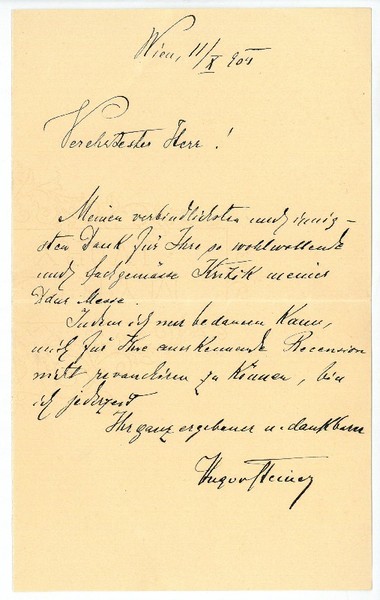 Wien, 11/X 904
Verehrtester Herr!
Meinen verbindlichsten und innig-
sten Dank für Ihre so wohlwollende
und fachgemässe Kritik meiner
Ddur Messe.
Indem ich nur bedauern kann,
mich für Ihre anerkennende Recension
nicht revanchiren zu können, bin
ich jederzeit
Ihr ganz ergebener u. dankbarer
Hugo